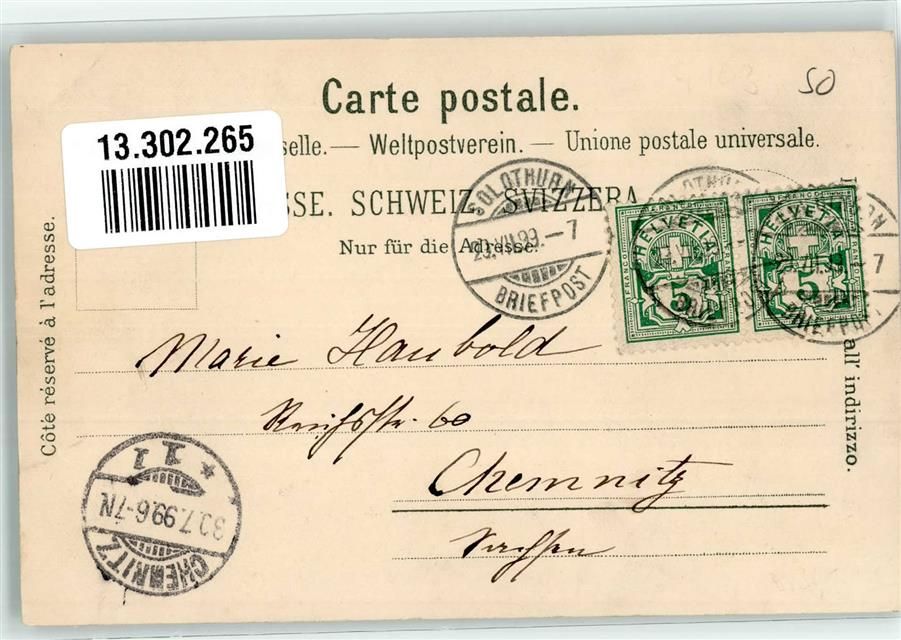 Carte postale.
50
13.302.265
selle. — Weltpostverein. — Unione postale universale.
SSE. SCHWEIZ. SVIZZERA
Nur für die Adresse.
SOLOTHURN
29.VII.99.–7
BRIEFPOST
HELVETIA
FRANCO
5
HELVETIA
5
VII.99.–7
BRIEFPOST
Côté réservé à l'adresse.
all' indirizzo.
Marie Haubold
Reichsstr. 60
Chemnitz
Sachsen
* 1 1 *
30.7.99.6-7N
CHEMNITZ